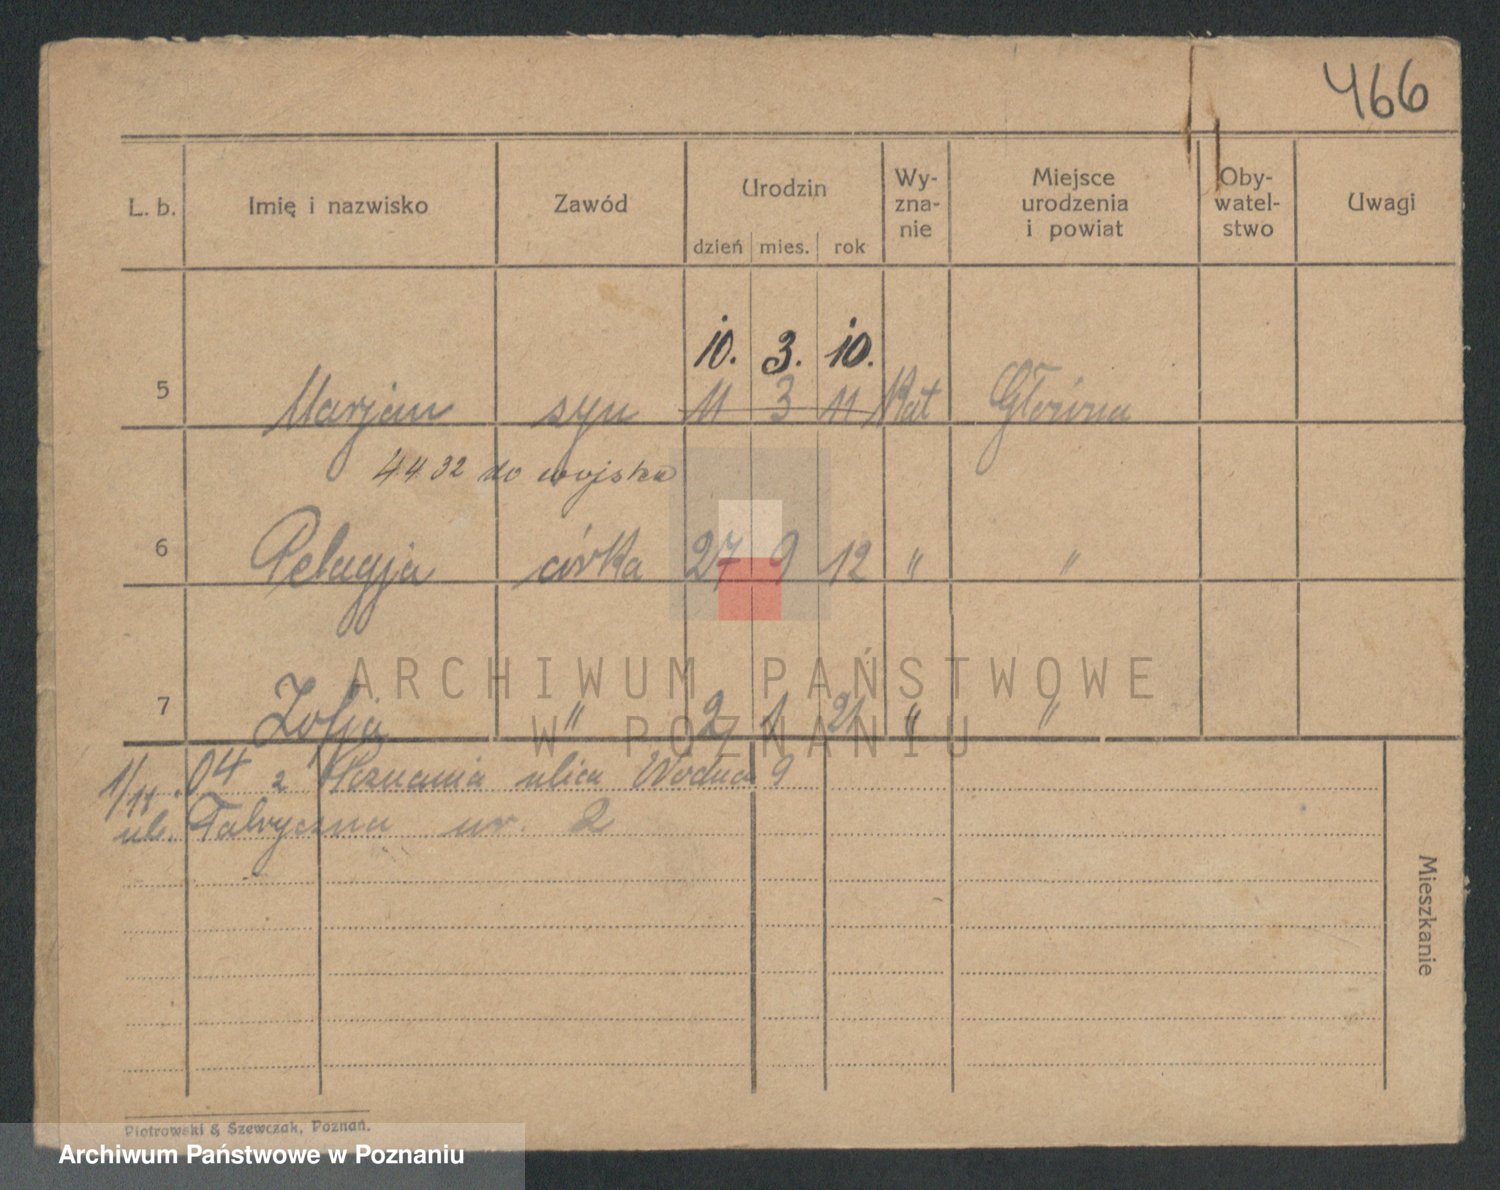 466
L. b. Imię i nazwisko Zawód Urodzin dzień mies. rok Wy-zna-nie Miejsce urodzenia i powiat Oby-watel-stwo Uwagi
10. 3. 10.
5 Marjan syn 11 3 11 Kat Główna
4 4 32 do wojska
6 Pelagja córka 27 9 12 " "
7 Zofja " 2 1 21 " "
ARCHIWUM PAŃSTWOWE
W POZNANIU
1/11.04 z Poznania ulica Wodna 9
ul. Fabryczna nr. 2
Mieszkanie
Piotrowski & Szewczak, Poznań.
Archiwum Państwowe w Poznaniu